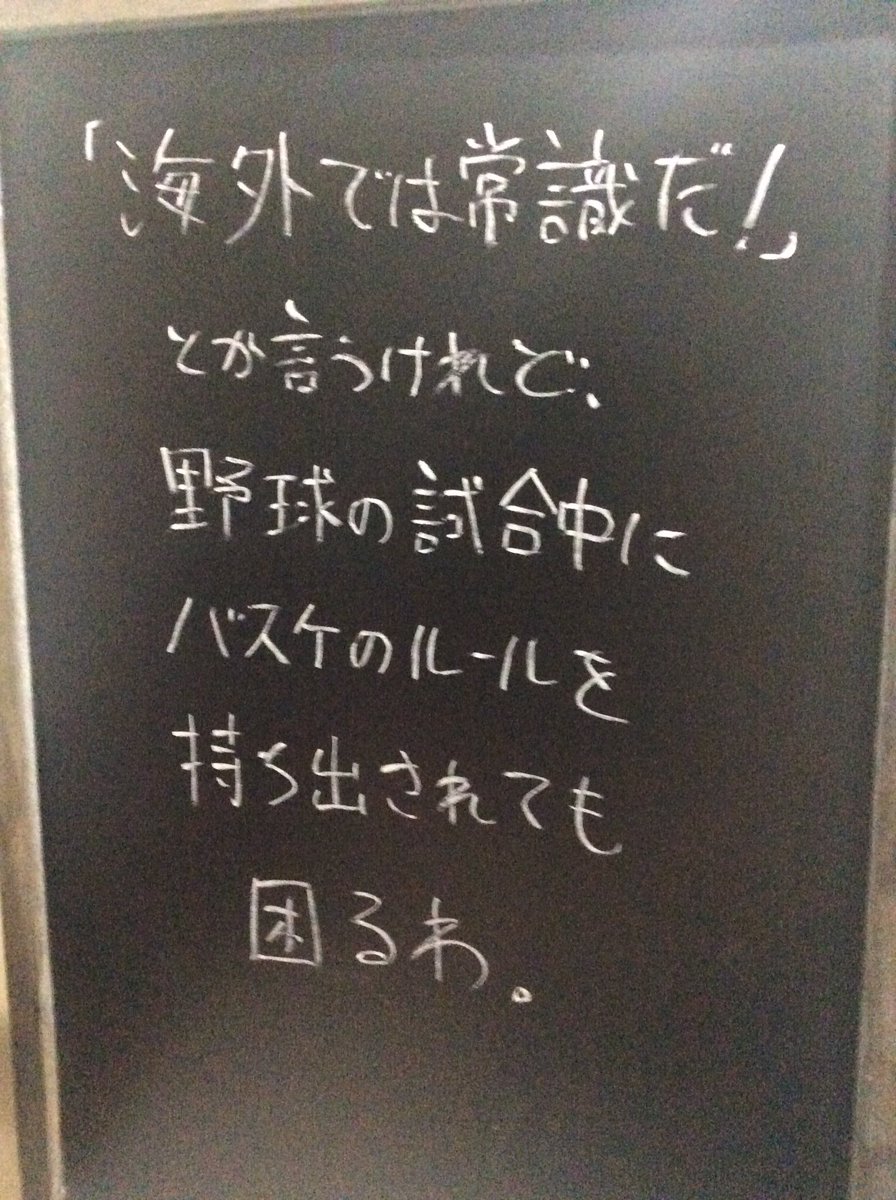 「海外では常識だ!」
とか言うけれど、
野球の試合中に
バスケのルールを
持ち出されても
困るわ。